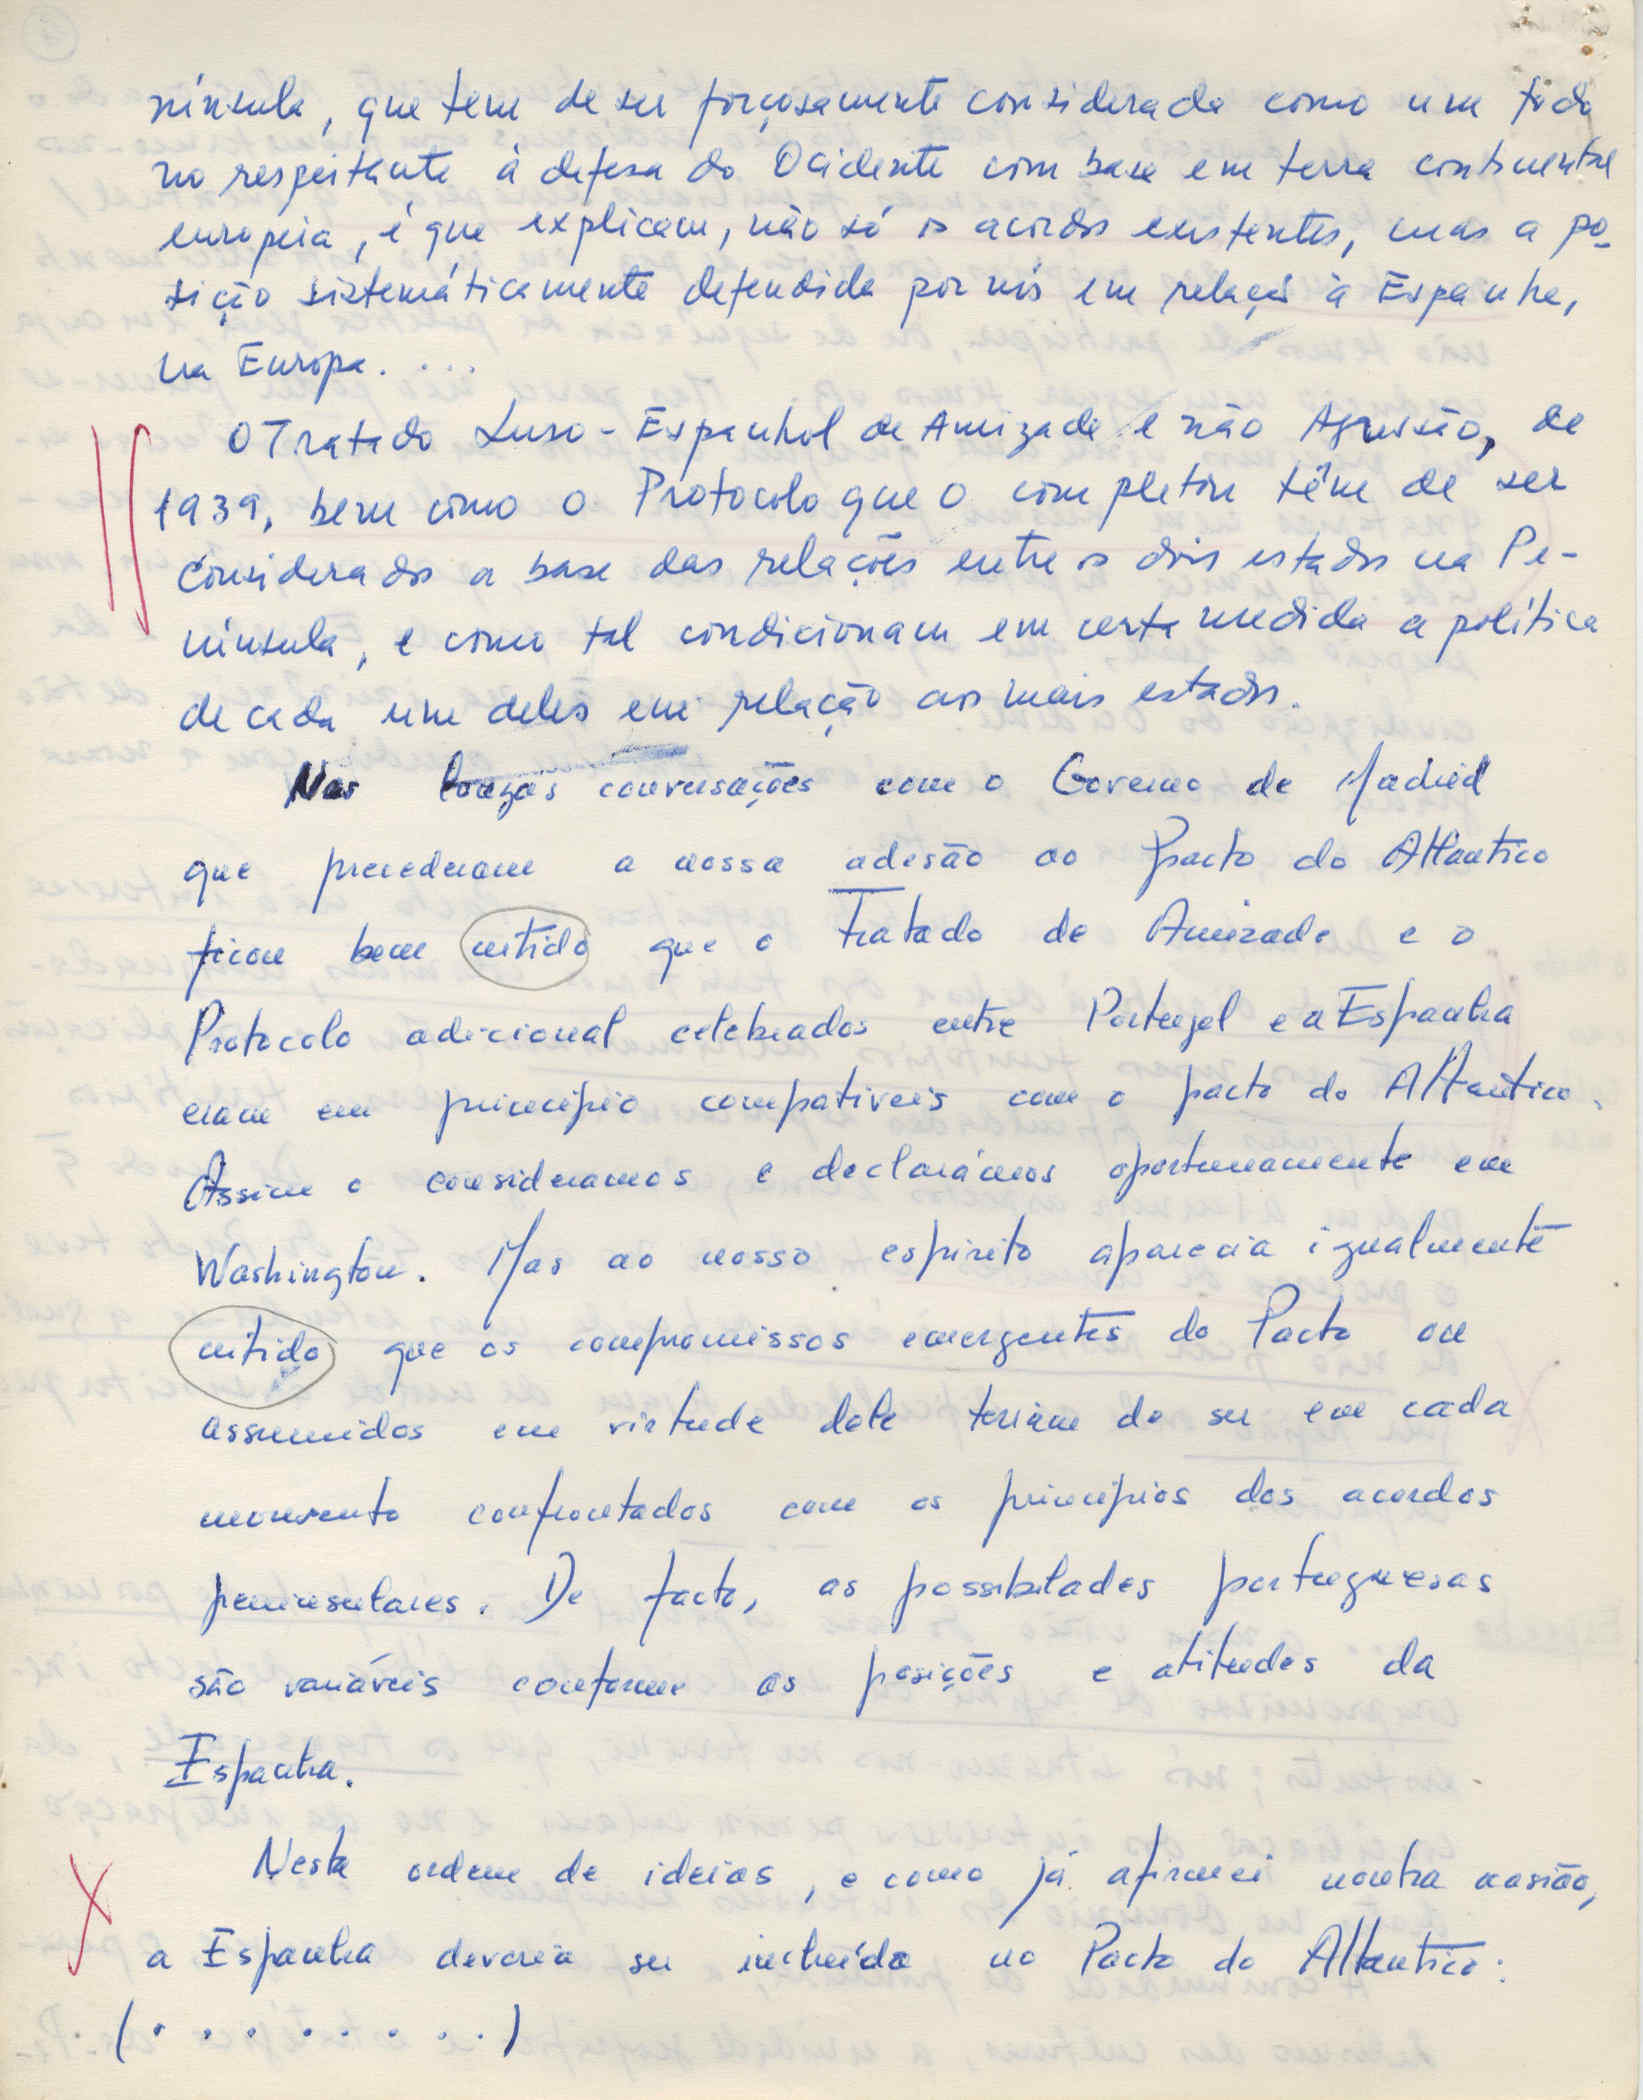 nínsula, que tem de ser forçosamente considerada como um todo
no respeitante à defesa do Ocidente com base em terra continental
europeia, é que explicam, não só os acordos existentes, mas a po-
sição sistemáticamente defendida por nós em relação à Espanha,
na Europa. ...
O Tratado Luso-Espanhol de Amizade e não Agressão, de
1939, bem como o Protocolo que o completou têm de ser
considerados a base das relações entre os dois estados na Pe-
nínsula, e como tal condicionam em certa medida a política
de cada um deles em relação aos mais estados.
Nas longas conversações com o Governo de Madrid
que precederam a nossa adesão ao Pacto do Atlantico
ficou bem nitido que o Tratado de Amizade e o
Protocolo adicional celebrados entre Portugal e a Espanha
eram em principio compativeis com o pacto do Atlantico.
Assim o consideramos e declarámos oportunamente em
Washington. Mas ao nosso espirito aparecia igualmente
nitido que os compromissos emergentes do Pacto ou
assumidos em virtude dele teriam de ser em cada
momento confrontados com os principios dos acordos
peninsulares. De facto, as possibilades portuguesas
são variáveis conforme as posições e atitudes da
Espanha.
Nesta ordem de ideias, e como já afirmei noutra ocasião,
a Espanha deveria ser incluída no Pacto do Atlantico:
(. . . . . . . .)